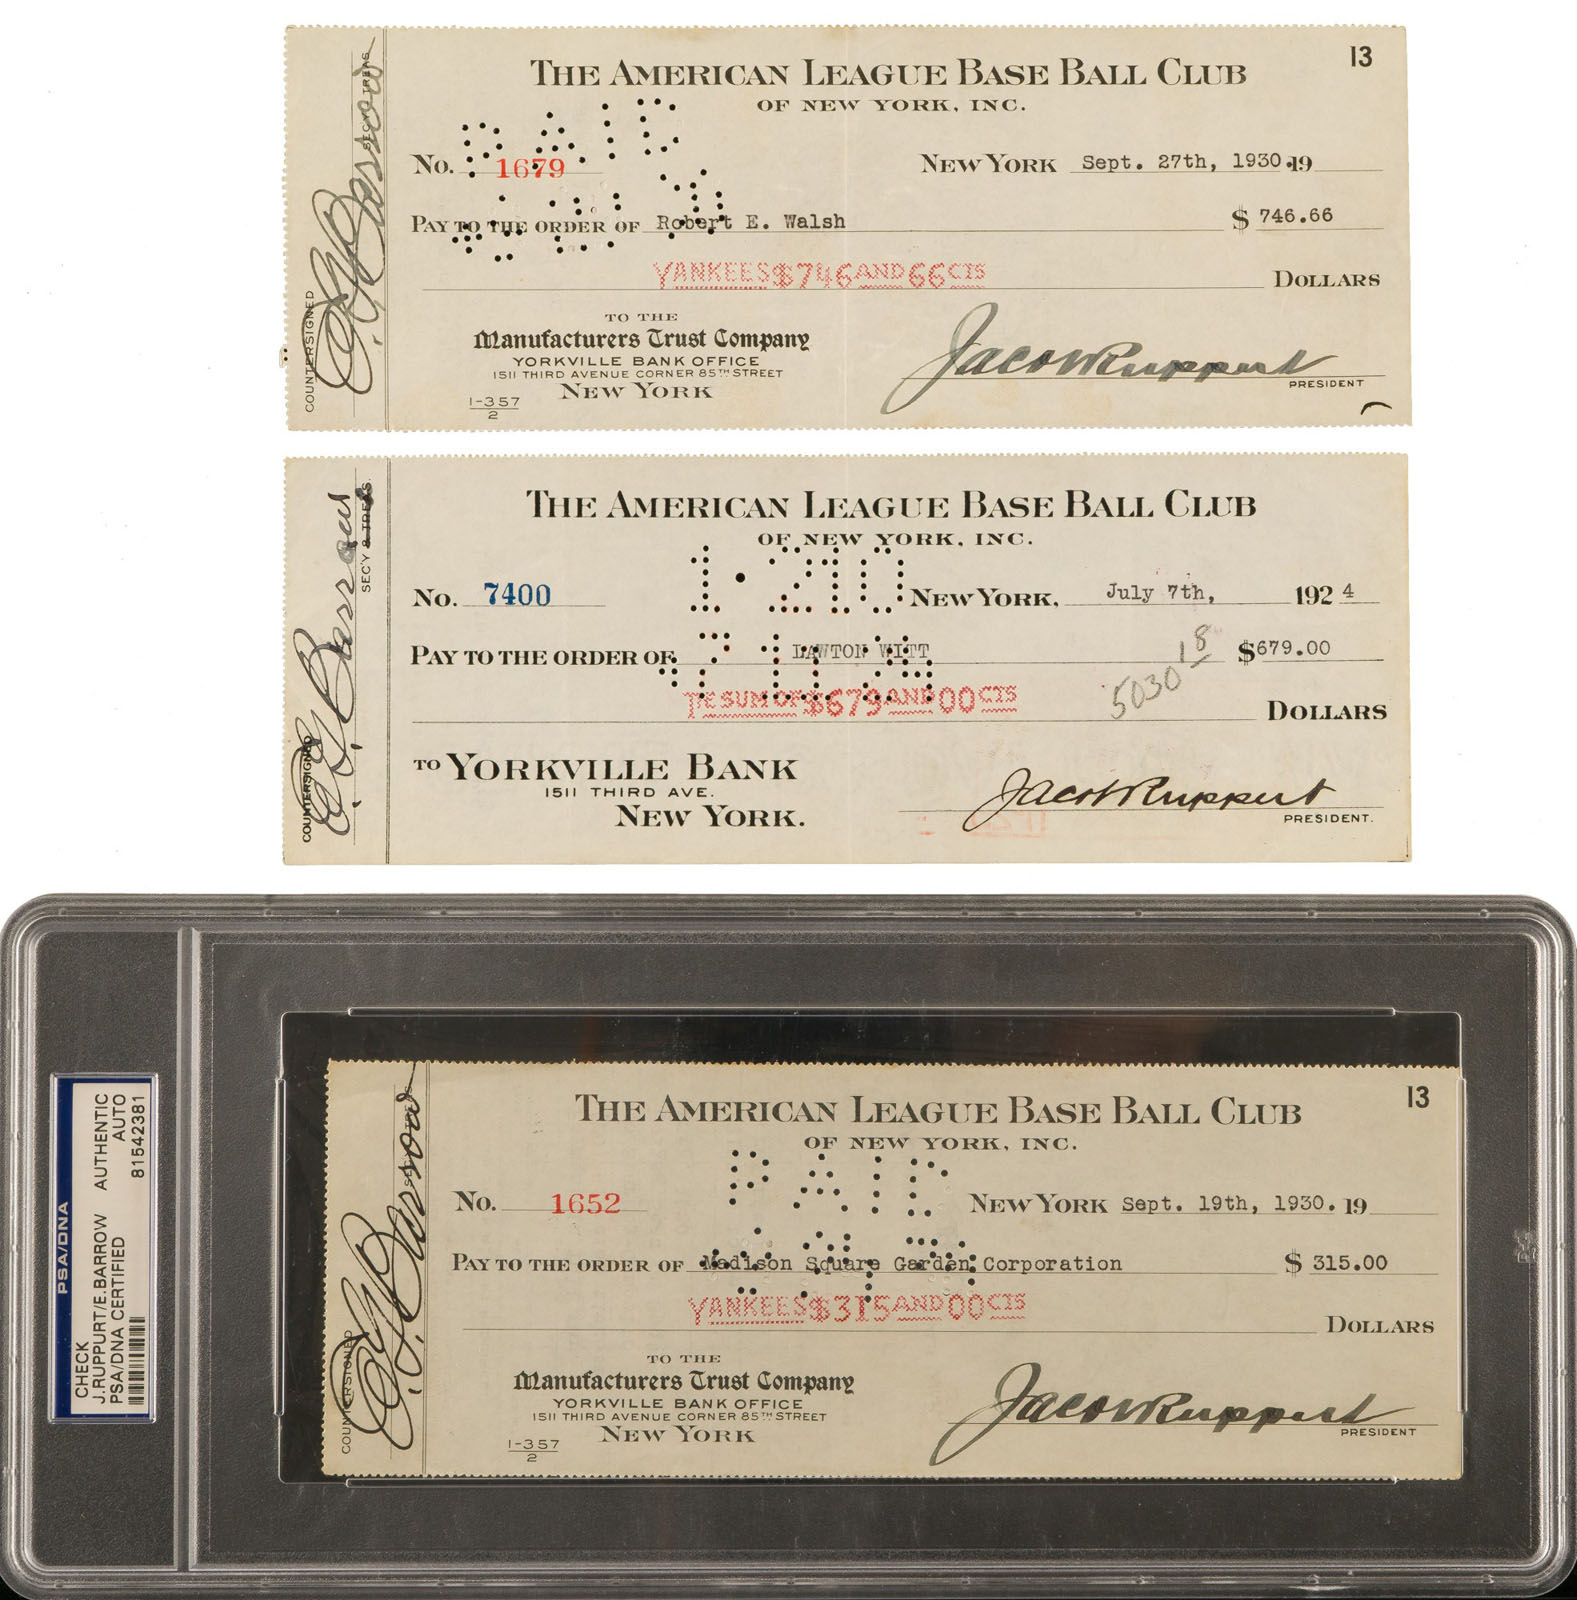 THE AMERICAN LEAGUE BASE BALL CLUB
13
OF NEW YORK, INC.
PAID
No. 1679
NEW YORK Sept. 27th, 1930. 19
PAY TO THE ORDER OF Robert E. Walsh
$ 746.66
YANKEES $746 AND 66 CTS
DOLLARS
TO THE
Manufacturers Trust Company
YORKVILLE BANK OFFICE
1511 THIRD AVENUE CORNER 85TH STREET
NEW YORK
1-357
2
Jacob Ruppert
PRESIDENT
COUNTERSIGNED
E. G. Barrow
SEC'Y & TREAS.
THE AMERICAN LEAGUE BASE BALL CLUB
OF NEW YORK, INC.
1·210
No. 7400
NEW YORK, July 7th, 1924
PAY TO THE ORDER OF LAWTON WITT
$679.00
18
5030
THE SUM OF $679 AND 00 CTS
DOLLARS
TO YORKVILLE BANK
1511 THIRD AVE.
NEW YORK.
Jacob Ruppert
PRESIDENT.
COUNTERSIGNED
E. G. Barrow
SEC'Y & TREAS.
PSA/DNA
CHECK
AUTHENTIC
J.RUPPURT/E.BARROW
AUTO
PSA/DNA CERTIFIED
81542381
THE AMERICAN LEAGUE BASE BALL CLUB
13
OF NEW YORK, INC.
PAID
No. 1652
NEW YORK Sept. 19th, 1930. 19
PAY TO THE ORDER OF Madison Square Garden Corporation
$ 315.00
YANKEES $315 AND 00 CTS
DOLLARS
TO THE
Manufacturers Trust Company
YORKVILLE BANK OFFICE
1511 THIRD AVENUE CORNER 85TH STREET
NEW YORK
1-357
2
Jacob Ruppert
PRESIDENT
COUNTERSIGNED
E. G. Barrow